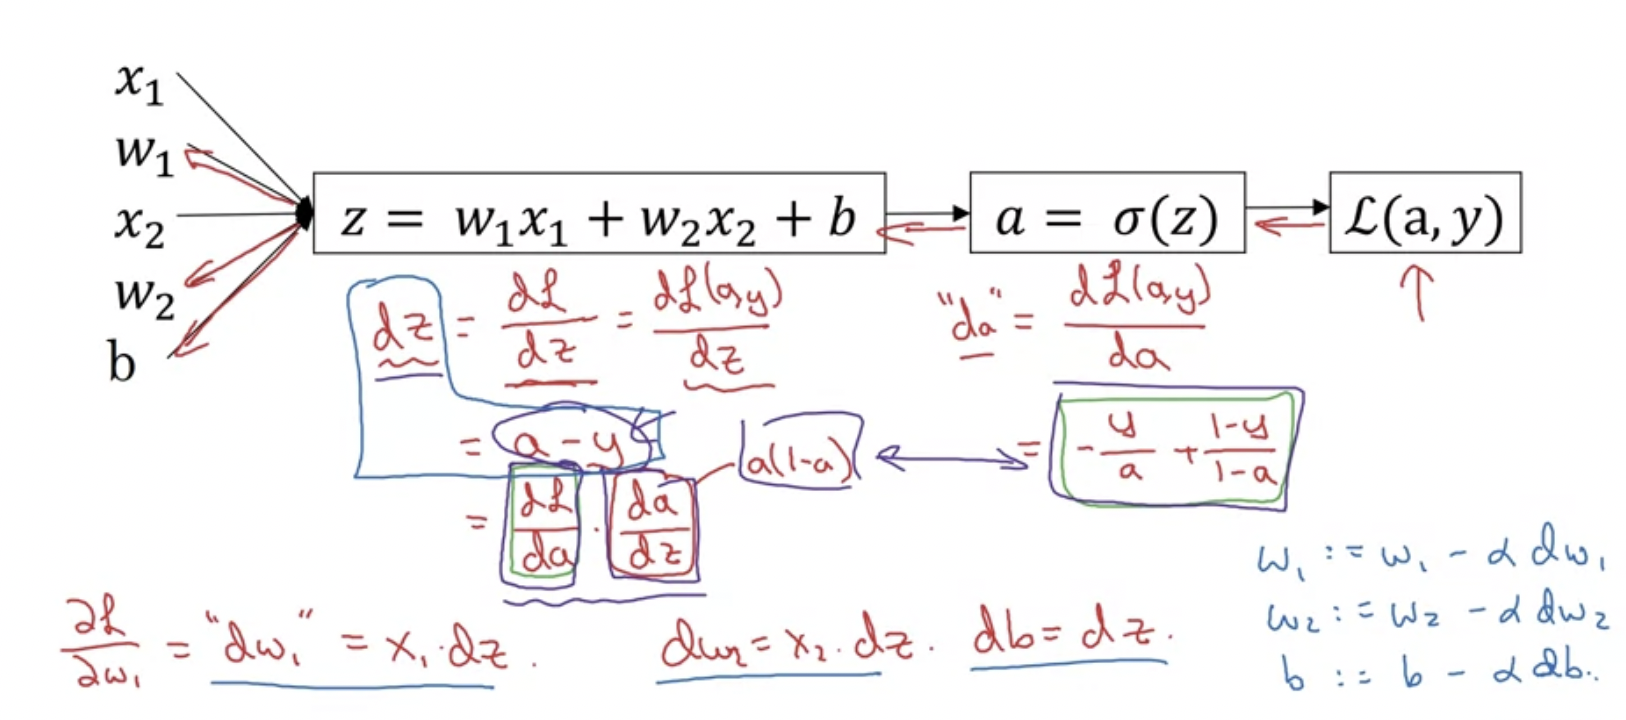 x₁
w₁
x₂
w₂
b
z = w₁x₁ + w₂x₂ + b
a = σ(z)
ℒ(a, y)
dz = dℒ/dz = dℒ(a,y)/dz
"da" = dℒ(a,y)/da
= a - y
a(1-a)
= - y/a + 1-y/1-a
= dℒ/da · da/dz
∂ℒ/∂w₁ = "dw₁" = x₁·dz .
dw₂ = x₂·dz .
db = dz .
w₁ := w₁ - α dw₁
w₂ := w₂ - α dw₂
b := b - α db.